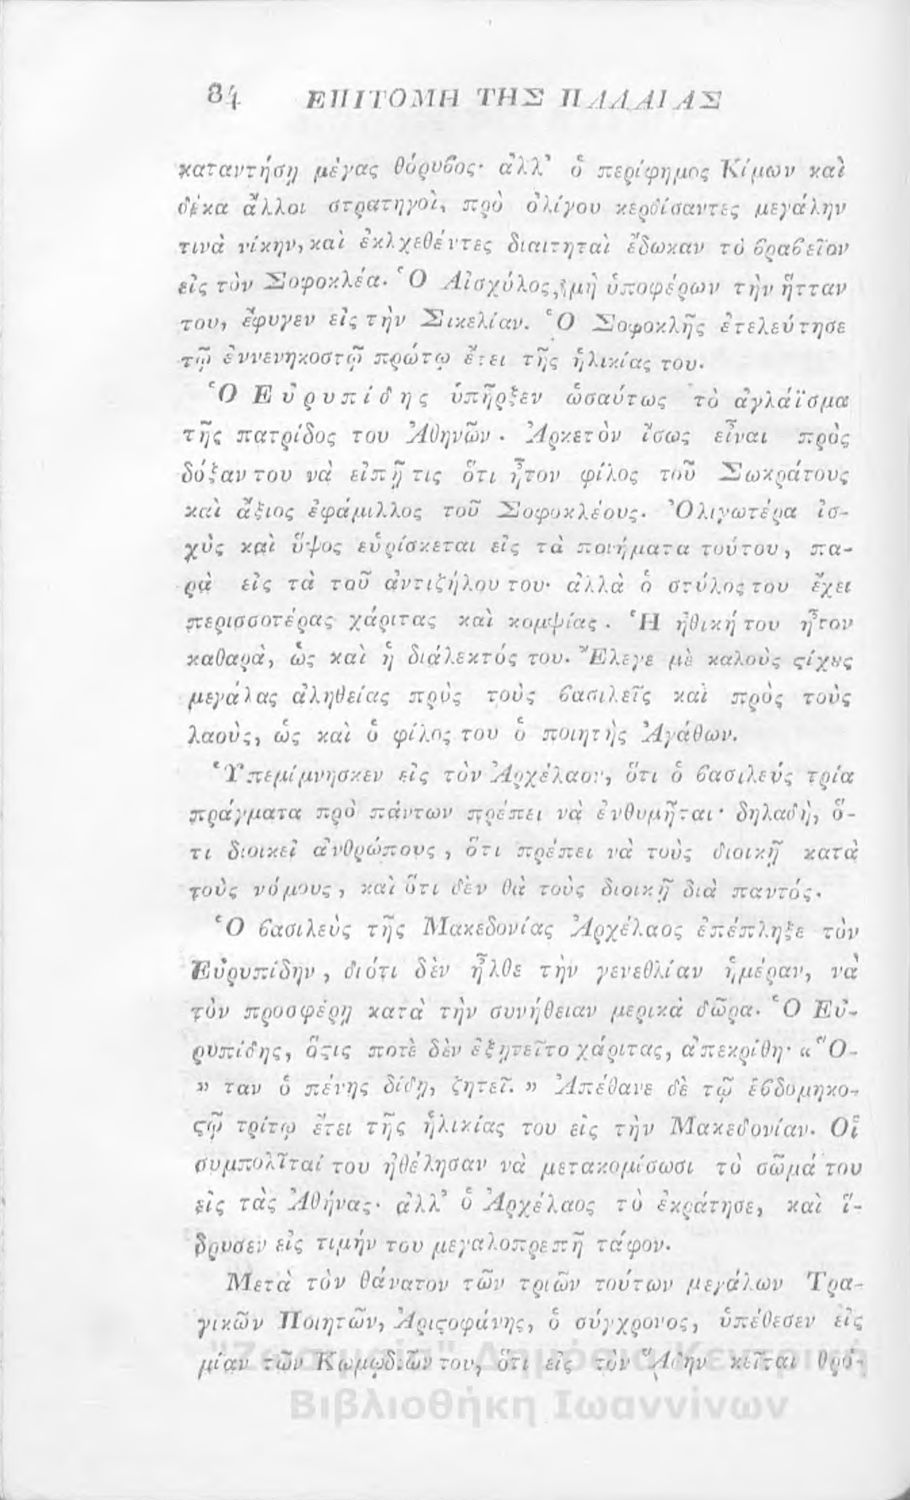 84 ΕΠΙΤΟΜΗ ΤΗΣ ΠΑΛΑΙΑΣ
καταντήσῃ μέγας θόρυβος· ἀλλ' ὁ περίφημος Κίμων καὶ
δέκα ἄλλοι στρατηγοὶ, πρὸ ὀλίγου κερδίσαντες μεγάλην
τινὰ νίκην, καὶ ἐκλχεθέντες διαιτηταὶ ἔδωκαν τὸ βραβεῖον
εἰς τὸν Σοφοκλέα. Ὁ Αἰσχύλος, μὴ ὑποφέρων τὴν ἧτταν
του, ἔφυγεν εἰς τὴν Σικελίαν. Ὁ Σοφοκλῆς ἐτελεύτησε
τῷ ἐννενηκοστῷ πρώτῳ ἔτει τῆς ἡλικίας του.
Ὁ Εὐρυπίδης ὑπῆρξεν ὡσαύτως τὸ ἀγλάϊσμα
τῆς πατρίδος του Ἀθηνῶν. Ἀρκετὸν ἴσως εἶναι πρὸς
δόξαν του νὰ εἰπῇ τις ὅτι ἦτον φίλος τοῦ Σωκράτους
καὶ ἄξιος ἐφάμιλλος τοῦ Σοφοκλέους. Ὀλιγωτέρα ἰσ-
χὺς καὶ ὕψος εὑρίσκεται εἰς τὰ ποιήματα τούτου, πα-
ρὰ εἰς τὰ τοῦ ἀντιζήλου του· ἀλλὰ ὁ στύλος του ἔχει
περισσοτέρας χάριτας καὶ κομψίας. Ἡ ἠθική του ἦτον
καθαρὰ, ὡς καὶ ἡ διάλεκτός του. Ἔλεγε μὲ καλοὺς ϛίχȣς
μεγάλας ἀληθείας πρὸς τοὺς βασιλεῖς καὶ πρὸς τοὺς
λαοὺς, ὡς καὶ ὁ φίλος του ὁ ποιητὴς Ἀγάθων.
Ὑπεμίμνησκεν εἰς τὸν Ἀρχέλαον, ὅτι ὁ βασιλεὺς τρία
πράγματα πρὸ πάντων πρέπει νὰ ἐνθυμῆται· δηλαδὴ, ὅ-
τι διοικεῖ ἀνθρώπους, ὅτι πρέπει νὰ τοὺς διοικῇ κατὰ
τοὺς νόμους, καὶ ὅτι δὲν θὰ τοὺς διοικῇ διὰ παντός.
Ὁ βασιλεὺς τῆς Μακεδονίας Ἀρχέλαος ἐπέπληξε τὸν
Εὐρυπίδην, διότι δὲν ἦλθε τὴν γενεθλίαν ἡμέραν, νὰ
τὸν προσφέρῃ κατὰ τὴν συνήθειαν μερικὰ δῶρα. Ὁ Εὐ-
ρυπίδης, ὅϛις ποτὲ δὲν ἐξητεῖτο χάριτας, ἀπεκρίθη· « Ὅ-
» ταν ὁ πένης δίδῃ, ζητεῖ. » Ἀπέθανε δὲ τῷ ἑβδομηκο-
ϛῷ τρίτῳ ἔτει τῆς ἡλικίας του εἰς τὴν Μακεδονίαν. Οἱ
συμπολῖταί του ἠθέλησαν νὰ μετακομίσωσι τὸ σῶμά του
εἰς τὰς Ἀθήνας· ἀλλ' ὁ Ἀρχέλαος τὸ ἐκράτησε, καὶ ἵ-
δρυσεν εἰς τιμήν του μεγαλοπρεπῆ τάφον.
Μετὰ τὸν θάνατον τῶν τριῶν τούτων μεγάλων Τρα-
γικῶν Ποιητῶν, Ἀριϛοφάνης, ὁ σύγχρονος, ὑπέθεσεν εἰς
μίαν τῶν Κωμῳδιῶν του, ὅτι εἰς τὸν ᾍδην κεῖται θρό-
"Ζωσιμαία" Δημόσια Κεντρική
Βιβλιοθήκη Ιωαννίνων